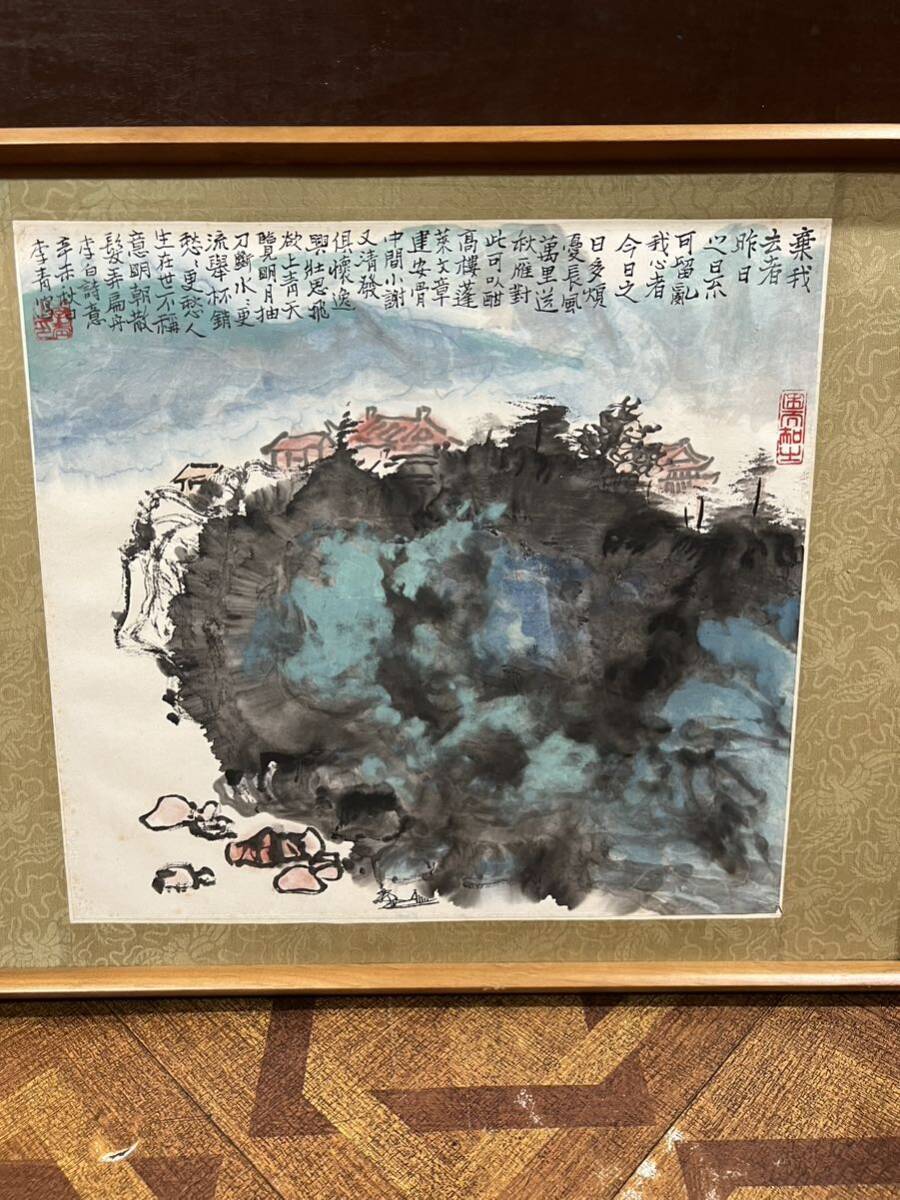 棄我
去者
昨日
之日不
可留亂
我心者
今日之
日多煩
憂長風
萬里送
秋雁對
此可以酣
高樓蓬
萊文章
建安骨
中間小謝
又清發
俱懷逸
興壯思飛
欲上青天
覽明月抽
刀斷水〻更
流舉杯銷
愁〻更愁人
生在世不稱
意明朝散
髮弄扁舟
李白詩意
辛未秋
李青寫